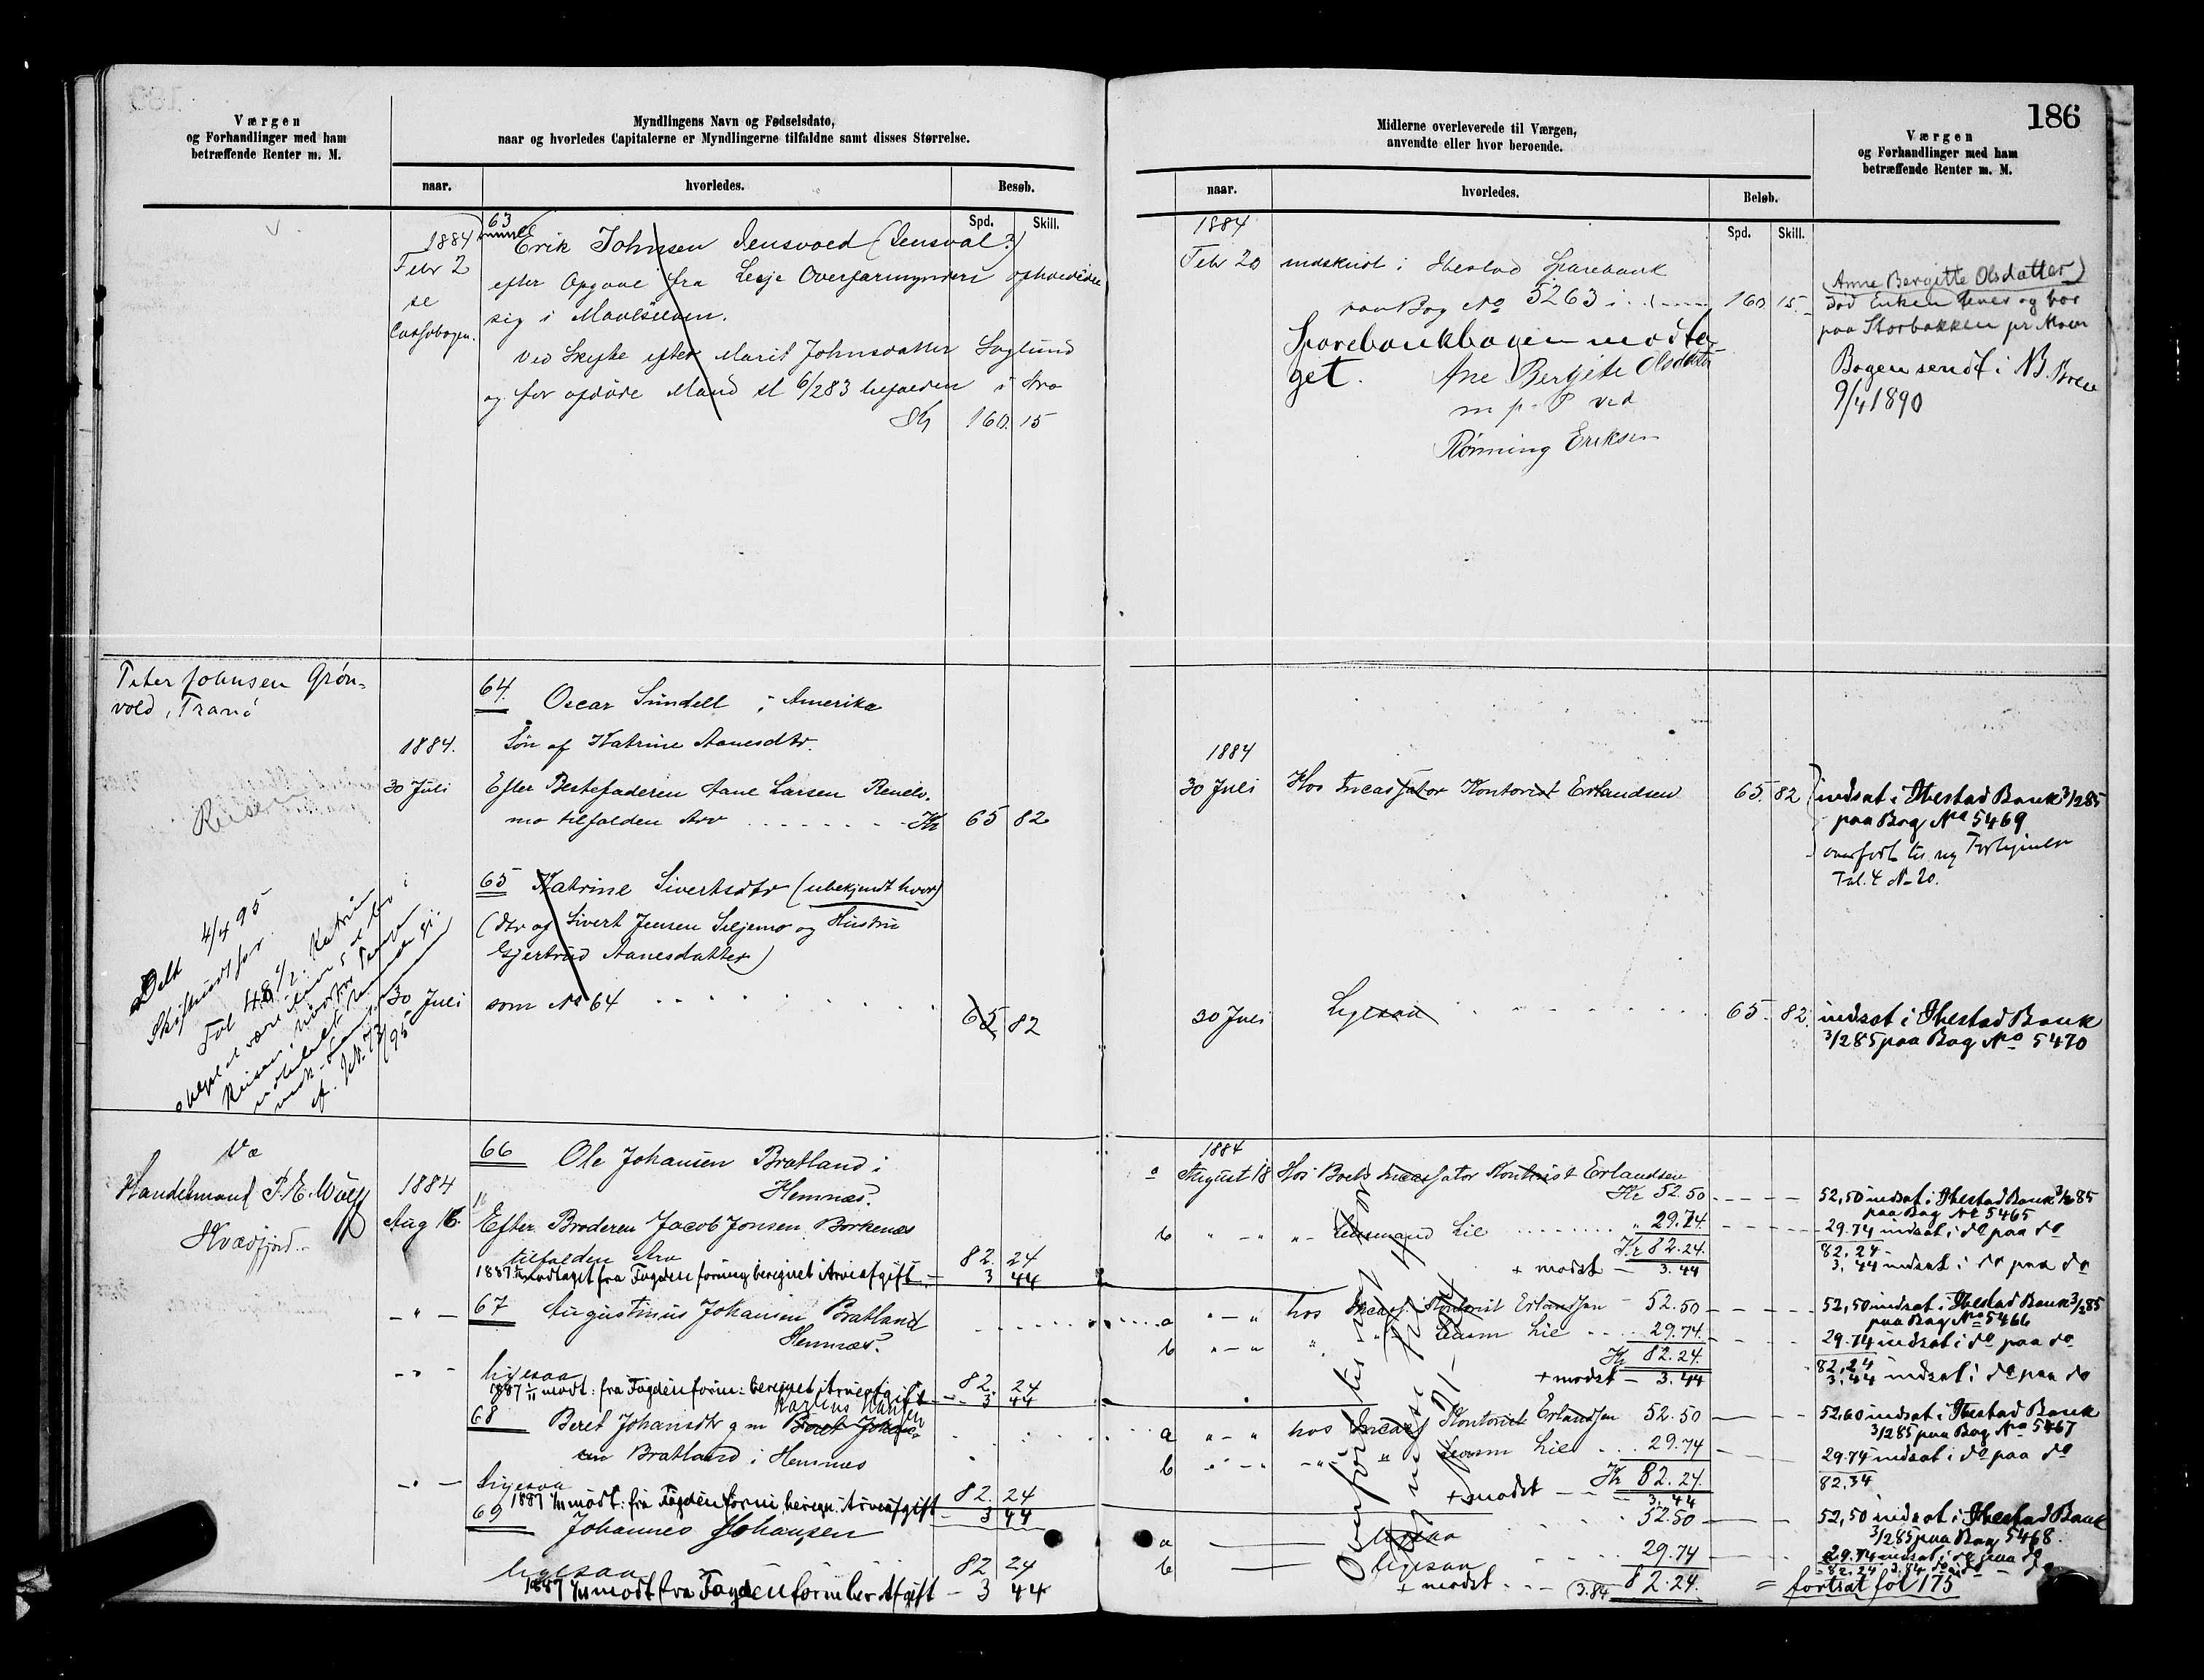 186
Værgen
og Forhandlinger med ham
betræffende Renter m. M.
Myndlingens Navn og Fødselsdato,
naar og hvorledes Capitalerne er Myndlingerne tilfaldne samt disses Størrelse.
naar.
hvorledes.
Besøb.
Spd.
Skill.
1884
Febr 2
se
Cassobogen.
63
Erik Johnsen Jensvold (Jensvol?)
efter Opgave fra Lesje Overformynderi opholdende
sig i Maalselven.
Ved Skifte efter Marit Johnsdatter
og før afdøde Mand d 6/2 83 i Arv
Kr 160. 15
Peter Johnsen Grøn-
vold, Tranö
Reisen
64.
Oscar Sundell i Amerika
Søn af Katrine Aanesdtr.
1884.
30 Juli
Efter Bestefaderen Aane Larsen
mo tilfalden Arv Kr 65 82
65 Katrine Sivertsdtr (ubekjendt hvor)
(dtr af Sivert Jensen Siljemo og Hustru
Gjertrud Aanesdatter)
30 Juli som No 64 65 82
Delt 4/4 95
Fol 48
Reisen
Handelsmand P. E. Wulff
Kvædfjord.
66
Ole Johansen Bratland i
Hemnæs.
1884
Aug 16
Efter Broderen Jacob Jonsen Borkenæs
tilfalden Arv 82. 24
1887 modtaget fra Fogden foruneg beregnet i Arveafgift 3 44
67 Augustinus Johansen Bratland
Hemnæs.
ligesaa 82. 24
1887 1/11 modt: fra Fogden forin: beregnet i Arveafgift 3 44
68 Beret Johansdtr g m Beret Johan-
sen Bratland i Hemnæs
ligesaa 82. 24
1887 1/11 modt: fra Fogden forin beregn. i Arveafgift 3 44
69
Johannes Johansen
ligesaa 82 24
1887 1/11 modt fra Fogden forin ber Afgift 3 44
Midlerne overleverede til Værgen,
anvendte eller hvor beroende.
Værgen
og Forhandlinger med ham
betræffende Renter m. M.
naar.
hvorledes.
Beløb.
Spd.
Skill.
1884
Febr 20 indskudt i Ibestad Sparebank
paa Bog No 5263 160. 15
Sparebankbogen modta-
get. Ane Bergite Olsdatter
m p. P ved
Rønning Eriksen
(Anne Bergitte Olsdatter)
død Enken lever og bor
paa Storbakken pr Moen
Bogen sendt i NB. Brev
9/4 1890
1884
30 Juli Hos Incassator Kontorist Erlandsen 65. 82
indsat i Ibestad Bank 3/2 85
paa Bog No 5469
overført til ny
Fol. 4 N- 20.
30 Juli Ligesaa 65. 82.
indsat i Ibestad Bank
3/2 85 paa Bog No 5470
1884
a August 18 Hos Incassator Kontorist Erlandsen
Kr 52.50
b Lensmand Lie 29.74
Kr 82.24.
+ modt 3.44
52,50 indsat i Ibestad Bank 3/2 85
paa Bog No 5465
29.74 indsat i do paa do
82.24
3.44 indsat i do paa do
a hos Incass. Kontorist Erlandsen 52.50
b Lensm Lie 29.74
Kr 82.24.
+ modt 3.44
52,50 indsat i Ibestad Bank 3/2 85
paa Bog No 5466
29.74 indsat i do paa do
82.24
3.44 indsat i do paa do
a hos Incass Kontorist Erlandsen 52.50
b Lensm Lie 29.74
Kr 82.24.
+ modt 3.44
52,60 indsat i Ibestad Bank
3/2 85 paa Bog No 5467
29.74 indsat i do paa do
82,34
a ligesaa 52.50
b ligesaa 29.74
+ modt 3.84 82.24.
52,50 indsat i Ibestad Bank
3/2 85 paa Bog No 5468.
29.74 indsat i do paa do
= fortsat fol 175